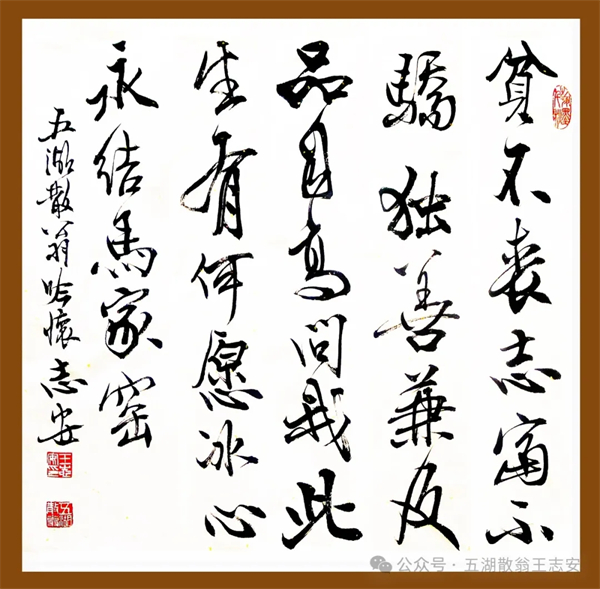 貧不丧志富不
驕独善兼及
品自高问我此
生有何愿冰心
永结馬家窑
五湖散翁吟懷志安
公众号 · 五湖散翁王志安